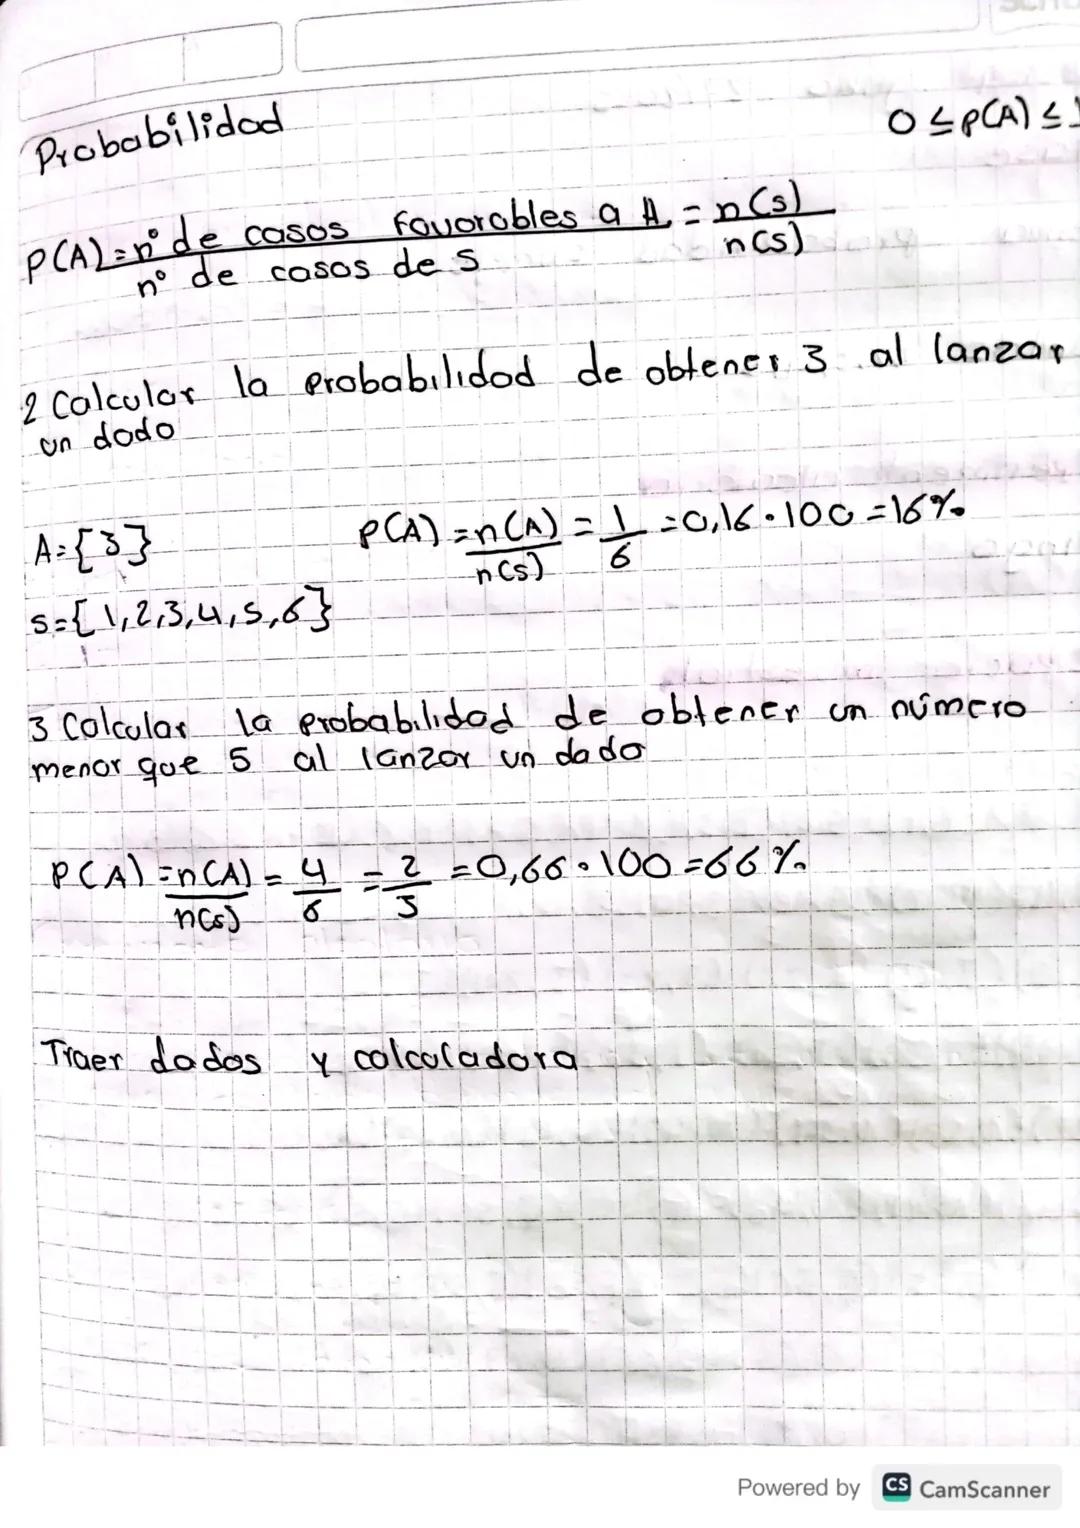 Probabilidad
0 ≤ p(A) ≤ 1
P(A) = nº de casos favorables a A = n(s)
nº de casos de s n(s)
2 Calcular la probabilidad de obtener 3 al lanzar
un dado
A = {3}
P(A) = n(A) = 1 = 0,16 · 100 = 16%
n(s) 6
s = {1,2,3,4,5,6}
3 Calcular la probabilidad de obtener un número
menor que 5 al lanzar un dado
P(A) = n(A) = 4 = 2 = 0,66 · 100 = 66%
n(s) 6 3
Traer dados y calculadora
Powered by CS CamScanner